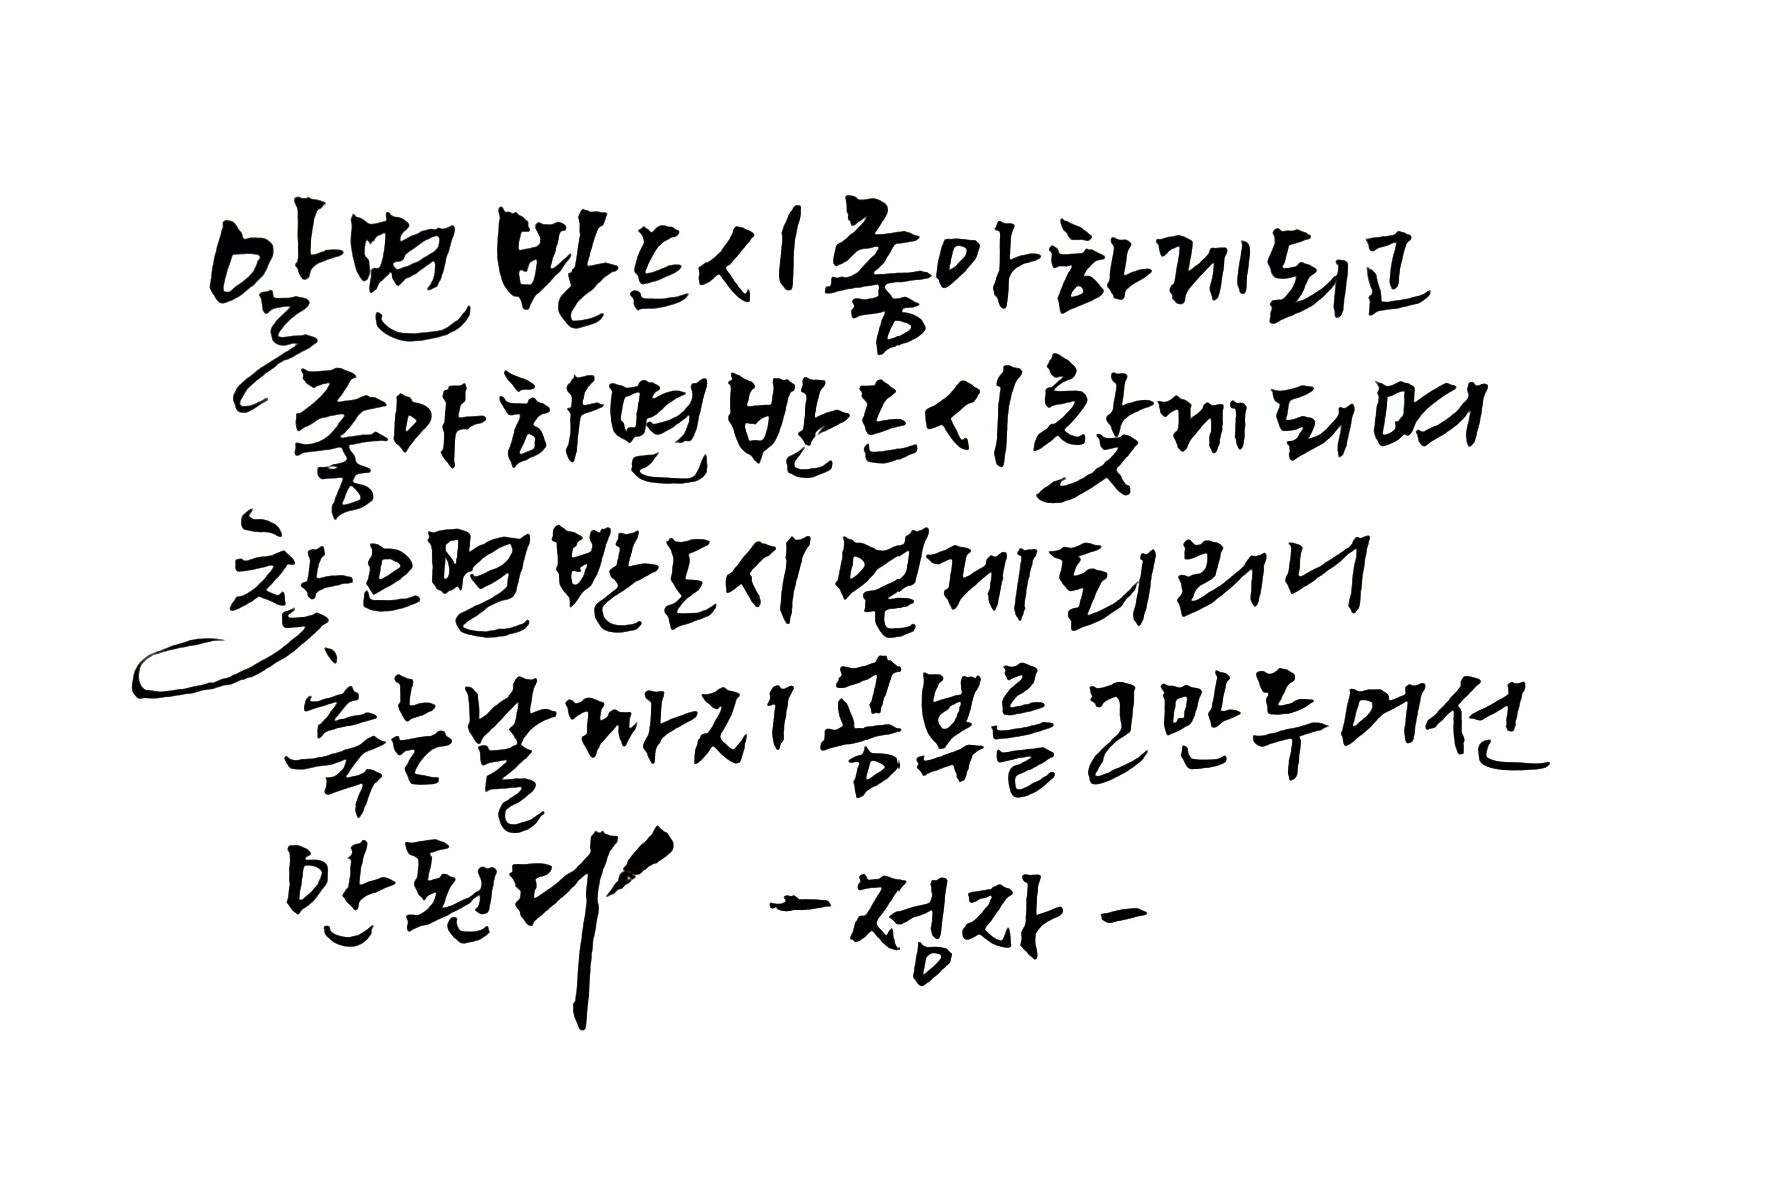 알면 반드시 좋아하게되고
좋아하면 반드시 찾게되며
찾으면 반드시 얻게되리니
죽는날까지 공부를 그만두어선
안된다
- 정자 -